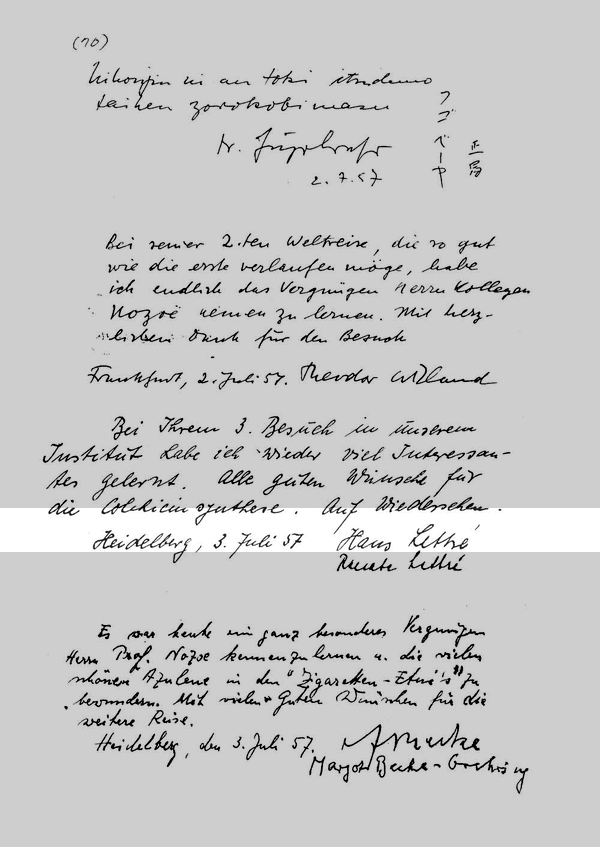 (70)
Nihonjin ni au toki itsudemo
taihen zorokobimasu
Dr.
2.7.57
フゴベーヤ
正局
Bei seiner 2.ten Weltreise, die so gut
wie die erste verlaufen möge, habe
ich endlich das Vergnügen Herrn Kollegen
Nozoë kennen zu lernen. Mit herz-
lichem Dank für den Besuch
Frankfurt, 2. Juli 57. Theodor Wieland
Bei Ihrem 3. Besuch in unserem
Institut habe ich wieder viel Interessan-
tes gelernt. Alle guten Wünsche für
die Colchicinsynthese. Auf Wiedersehen.
Heidelberg, 3. Juli 57 Hans Lettré
Renate Lettré
Es war heute ein ganz besonderes Vergnügen
Herrn Prof. Nozoe kennenzulernen u. die vielen
schönen Azulene in den "Zigaretten-Etui's" zu
bewundern. Mit vielen Guten Wünschen für die
weitere Reise.
Heidelberg, den 3. Juli 57.
Margot Becke-Goehring